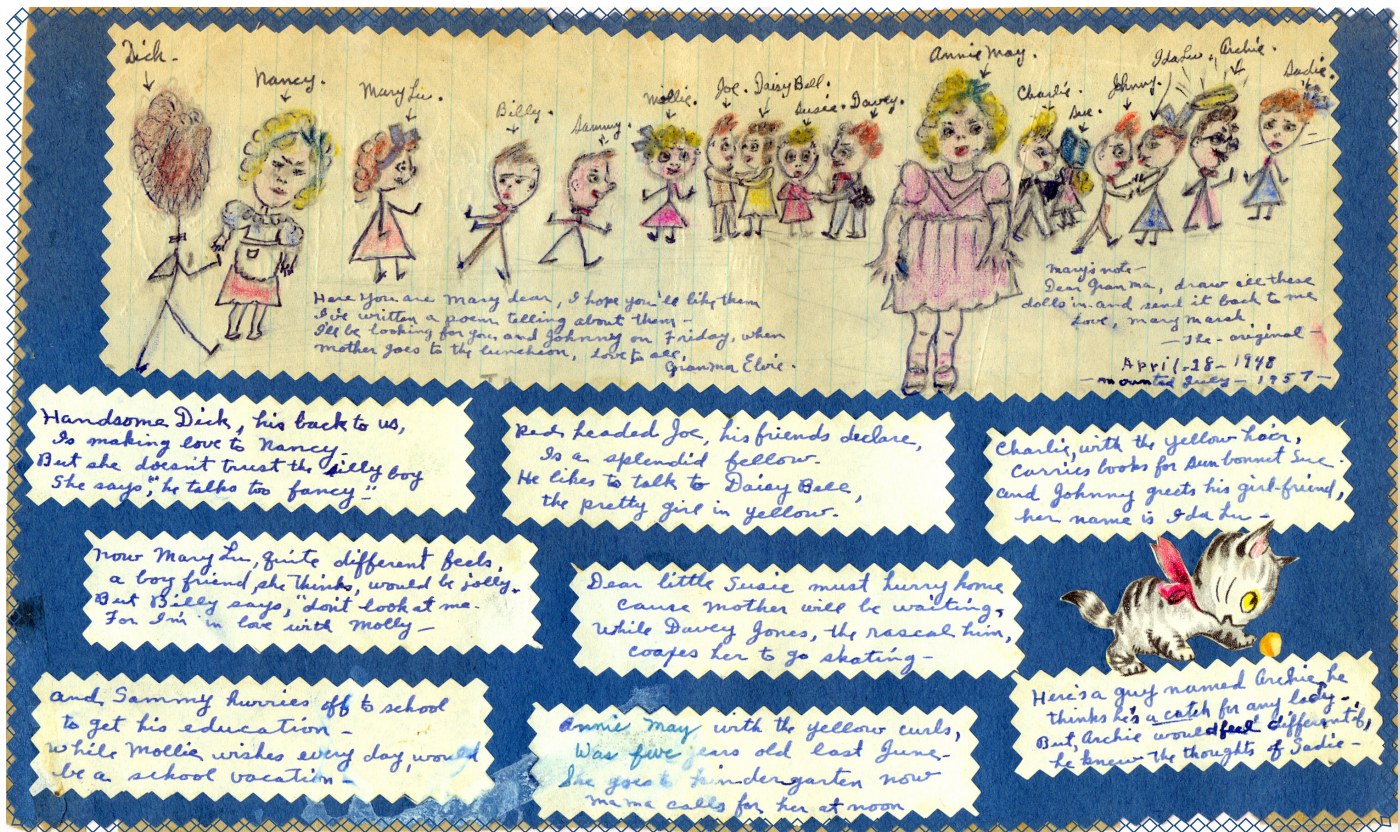 Dick-
Nancy.
Mary Lu.
Billy.
Sammy.
Mollie.
Joe.
Daisy Bell.
Susie.
Davey.
Annie May.
Charlie.
Sue.
Johnny.
Ida Lu.
Archie.
Sadie.
Here you are Mary dear, I hope you'll like them
I've written a poem telling about them-
I'll be looking for you and Johnny on Friday, when
mother goes to the luncheon, love to all,
Granma Elsie.
Mary's note-
Dear Granma, draw all these
dolls in and send it back to me
Love, Mary Marsh
-The original-
April-28-1948
-mounted July-1957-
Handsome Dick, his back to us,
Is making love to Nancy-
But she doesn't trust the silly boy
She says, "he talks too fancy-"
Now Mary Lu, quite different feels,
a boy friend, she thinks, would be jolly.
But Billy says, "don't look at me-
For I'm in love with Molly-
and Sammy hurries off to school
to get his education-
while Mollie wishes every day, would
be a school vacation-
Red headed Joe, his friends declare,
Is a splendid fellow-
He likes to talk to Daisy Bell,
the pretty girl in yellow-
Dear little Susie must hurry home
cause mother will be waiting,
while Davey Jones, the rascal him,
coaxes her to go skating-
Annie May with the yellow curls,
Was five years old last June-
She goes to kindergarten now
mama calls for her at noon
Charlie, with the yellow hair,
carries books for sunbonnet Sue-
and Johnny greets his girl-friend,
her name is Ida Lu-
Here's a guy named Archie, he
thinks he's a catch for any lady-
But, Archie would feel different, if,
he knew the thoughts of Sadie-